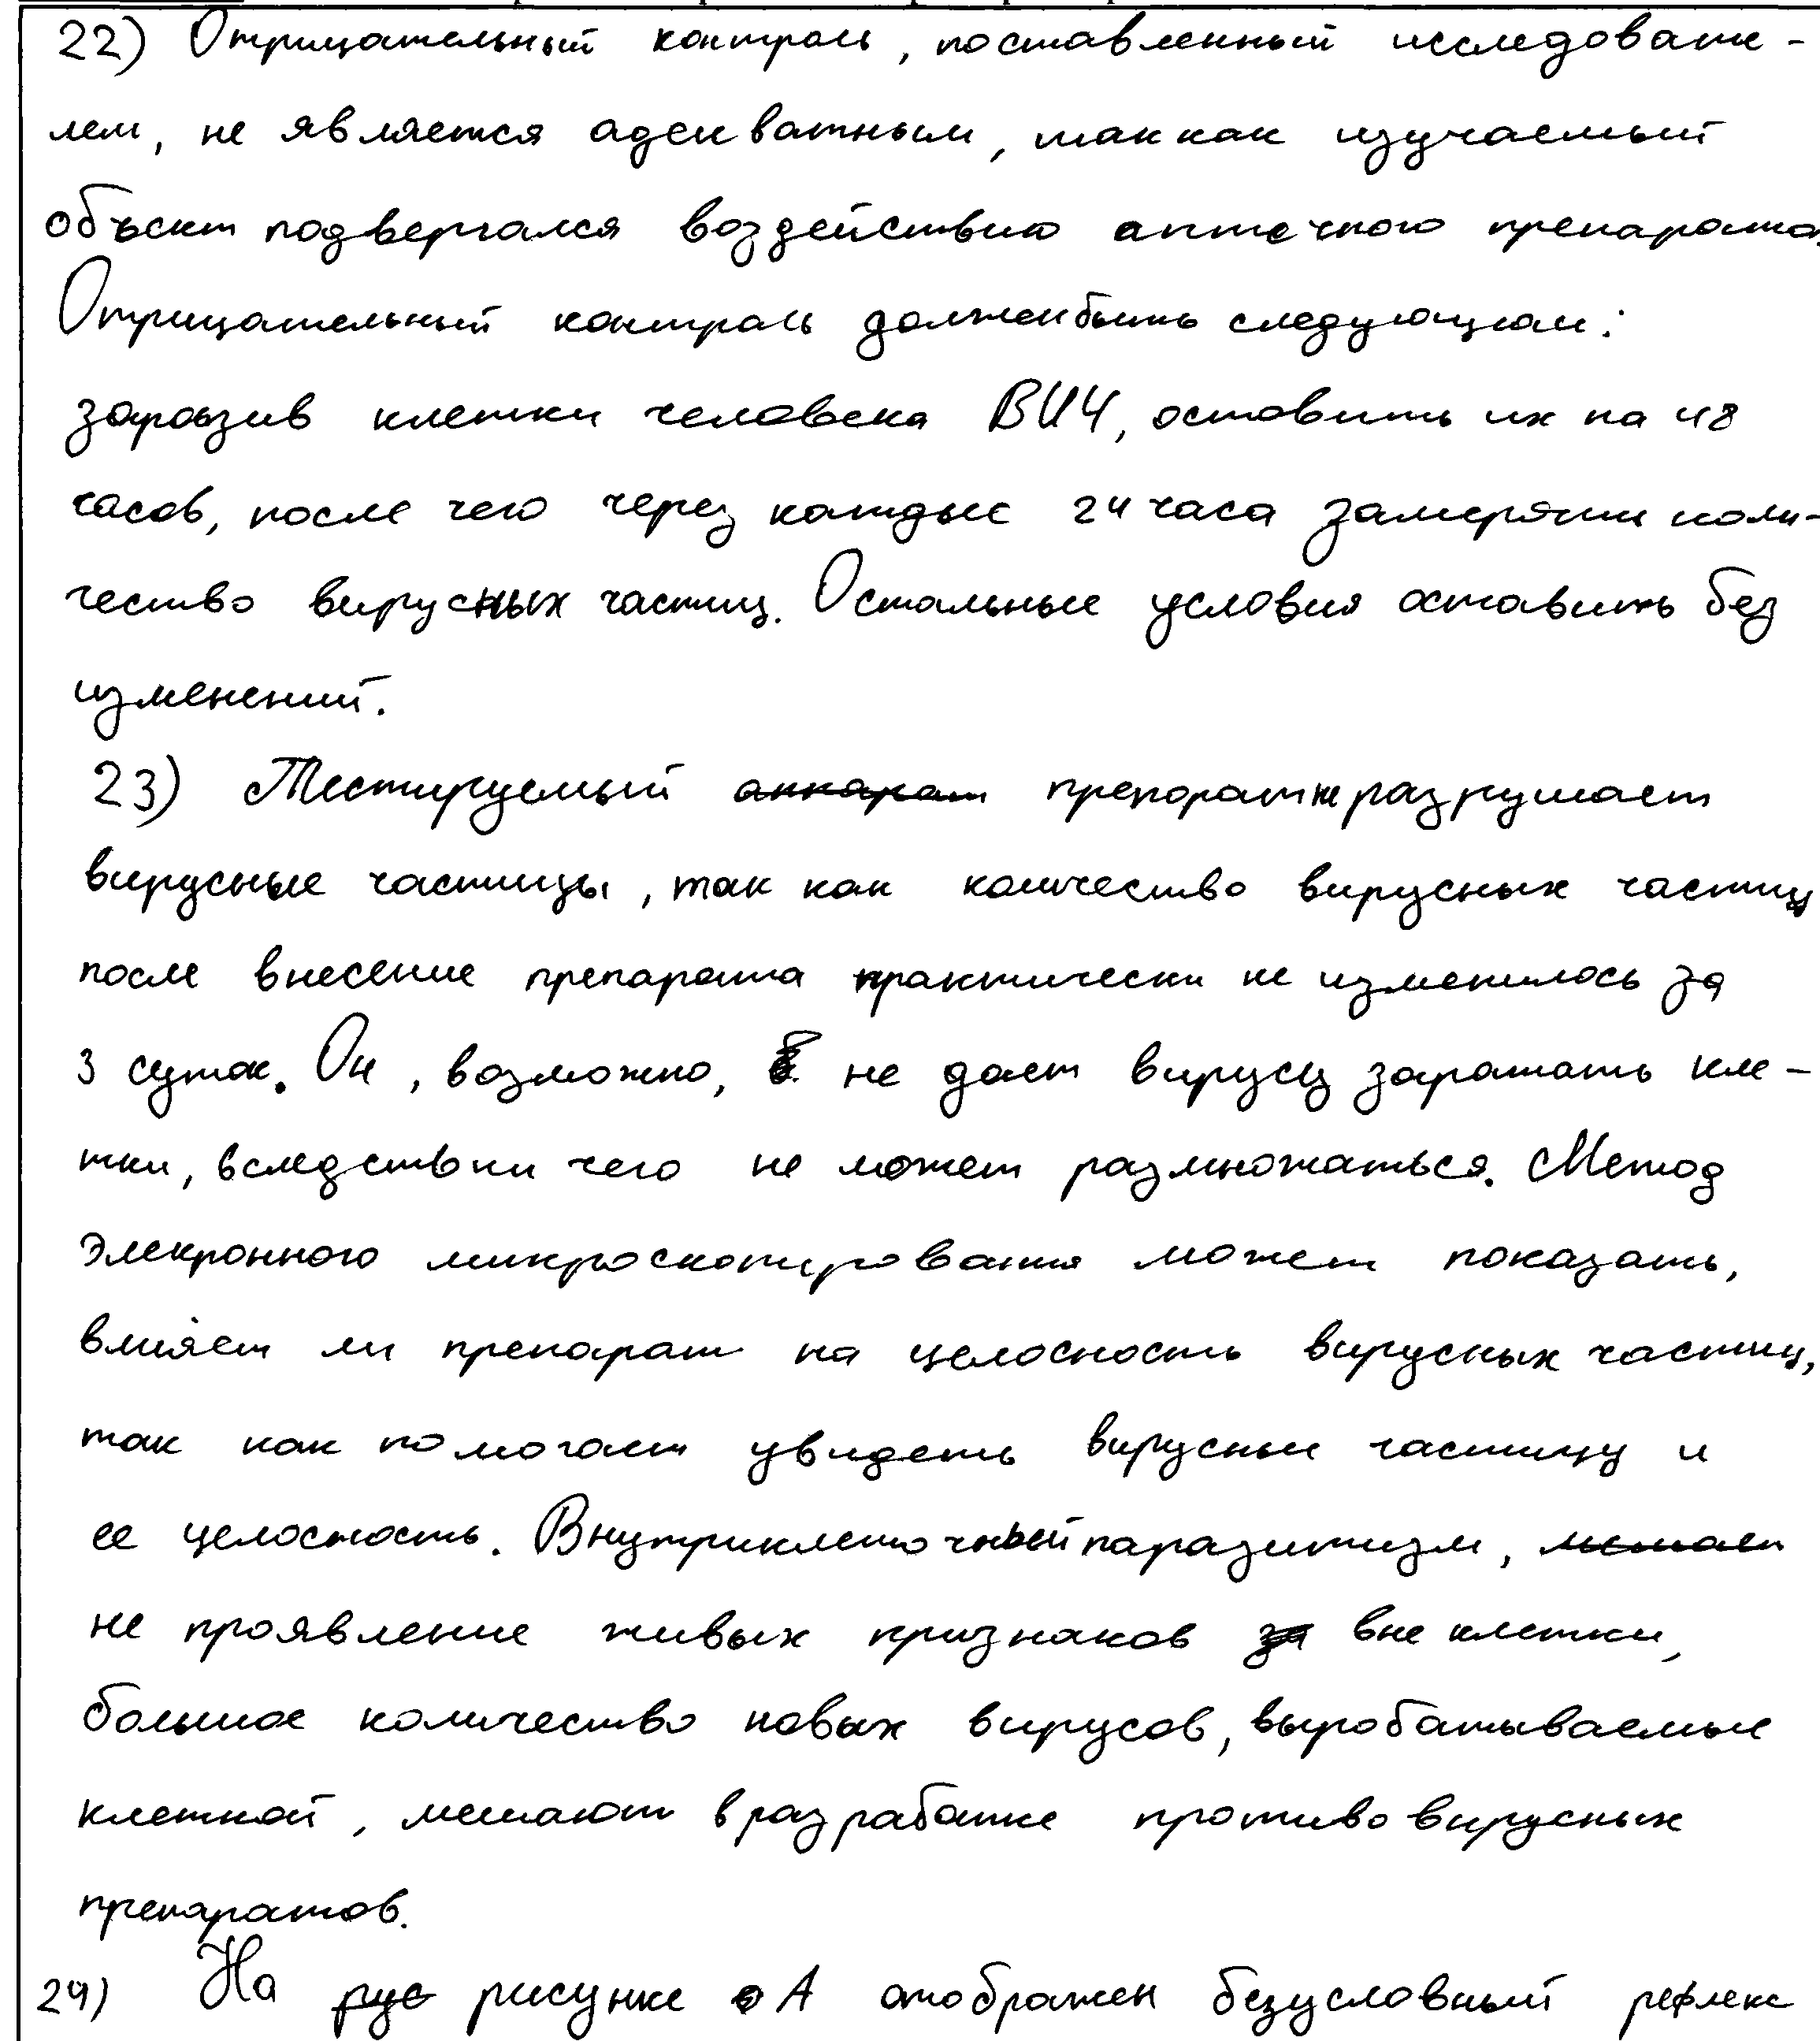 22) Отрицательный контроль, поставленный исследовате-
лем, не является адекватным, так как изучаемый
объект подвергался воздействию аптечного препарата.
Отрицательный контроль должен быть следующим:
заразив клетки человека ВИЧ, оставить их на 48
часов, после чего через каждые 24 часа замеряти коли-
чество вирусных частиц. Остальные условия оставить без
изменений.
23) Тестируемый аппарат препарат не разрушает
вирусные частицы, так как количество вирусных частиц
после внесение препарата практически не изменилось за
3 суток. Он, возможно, не дает вирусу заражать кле-
тки, вследствии чего не может размножаться. Метод
элекронного микроскопирования может показать,
влияет ли препарат на целосность вирусных частиц,
так как помогает увидеть вирусные частицу и
ее целостность. Внутриклеточный паразитизм, мешает
не проявление живых признаков за вне клетки,
большое количество новых вирусов, выробатываемые
клеткой, мешают в разработке противовирусных
препаратов.
24) На рус рисунке А отображен безусловный рефлекс